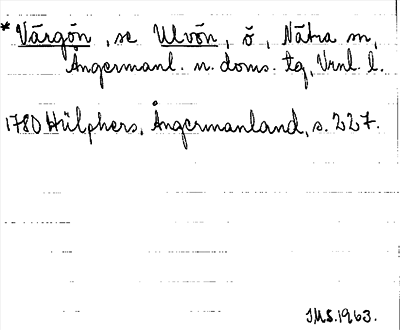 * Värgön, se Ulvön, ö, Nätra sn,
Ångermanl. n. doms. tg, Vrnl. l.
1780 Hülphers, Ångermanland, s. 227.
JMS. 1963.